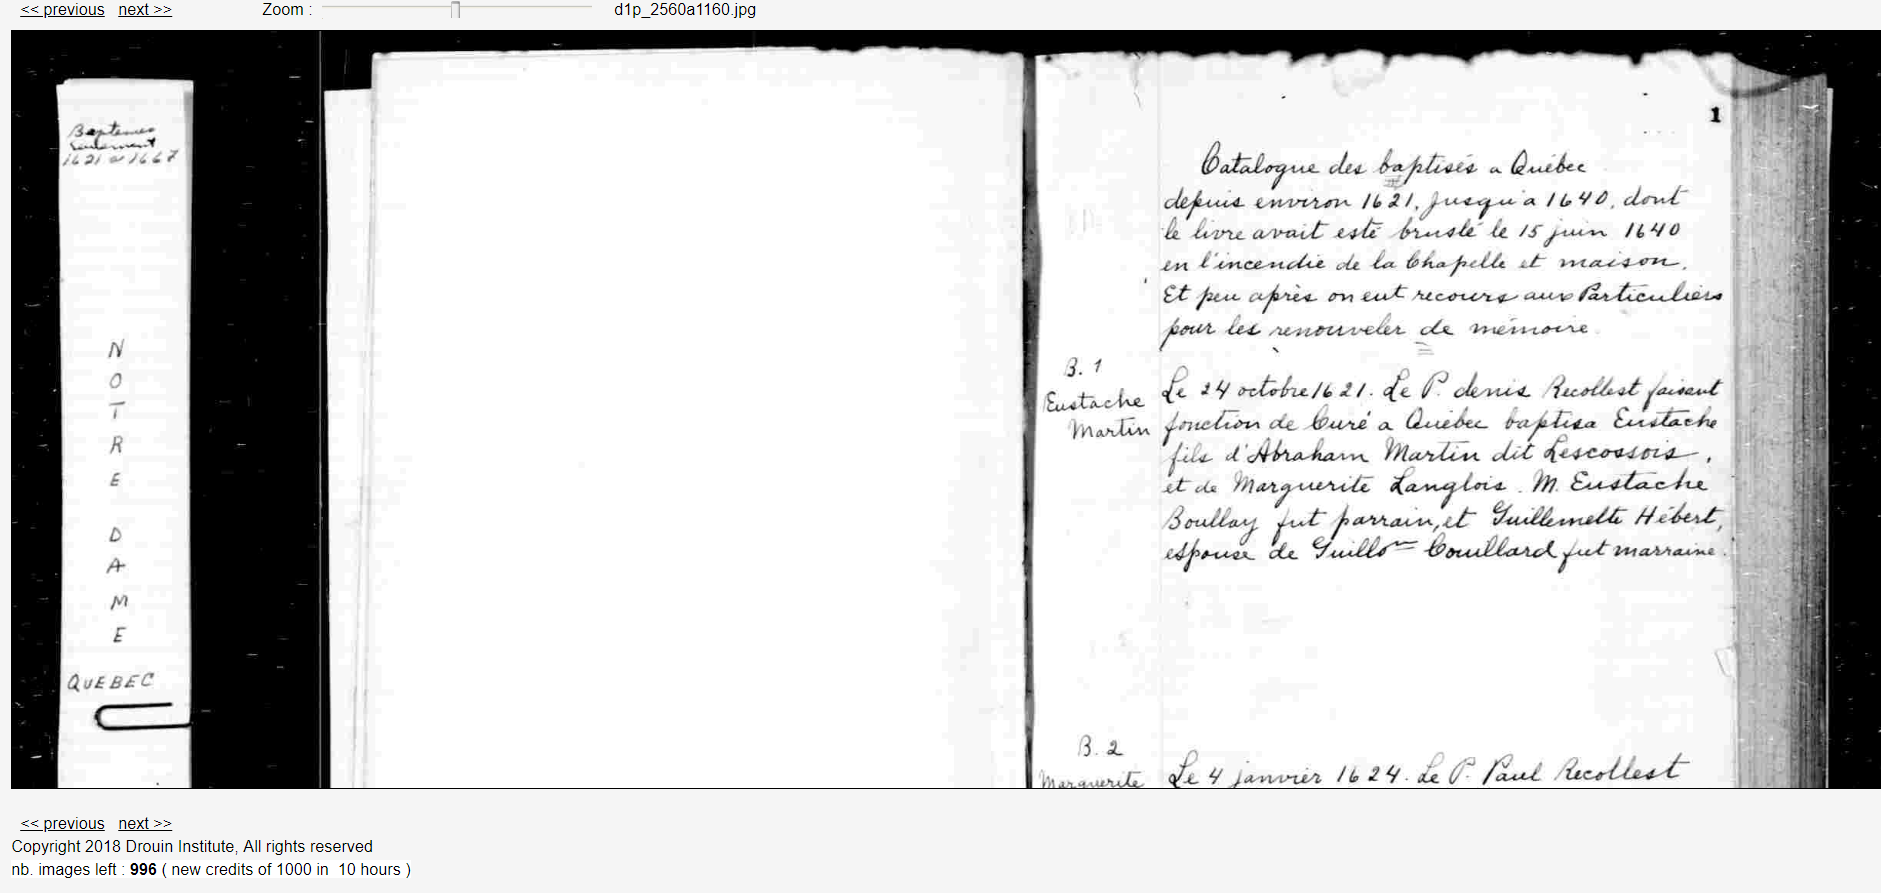 << previous next >> Zoom : d1p_2560a1160.jpg
Baptemes
seulement
1621 a 1667
N
O
T
R
E
D
A
M
E
QUEBEC
1
Catalogue des baptisés a Québec
depuis environ 1621, jusqu'a 1640, dont
le livre avait esté bruslé le 15 juin 1640
en l'incendie de la Chapelle et maison.
Et peu après on eut recours aux Particuliers
pour les renouveler de mémoire
B. 1
Eustache
Martin
Le 24 octobre 1621. Le P. denis Recollest faisant
fonction de Curé a Québec baptisa Eustache
fils d'Abraham Martin dit Lescossois,
et de Marguerite Langlois. M. Eustache
Boullay fut parrain, et Guillemette Hébert,
espouse de Guillome Couillard fut marraine.
B. 2
Marguerite
Le 4 janvier 1624. Le P. Paul Recollest
<< previous next >>
Copyright 2018 Drouin Institute, All rights reserved
nb. images left : 996 ( new credits of 1000 in 10 hours )